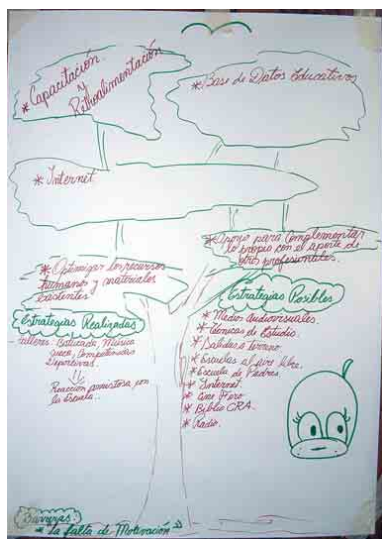 * Capacitación
y
Retroalimentación
* Base de Datos Educativos
* Internet
* Apoyo para Complementar
lo propio con el aporte de
otros profesionales.
* Optimizar los recursos
humanos y materiales
existentes
Estrategias Realizadas
talleres: Batucada, Música
Competencias
Deportivas
Reacción
la Escuela..
Estrategias Posibles
* Medios audiovisuales.
* Técnicas de Estudio.
* Salidas a terreno.
* Escuelas al aire libre.
* Escuela de Padres.
* Internet.
* Cine Foro
* Biblio CRA.
* Radio.
Barreras:
* la falta de Motivación